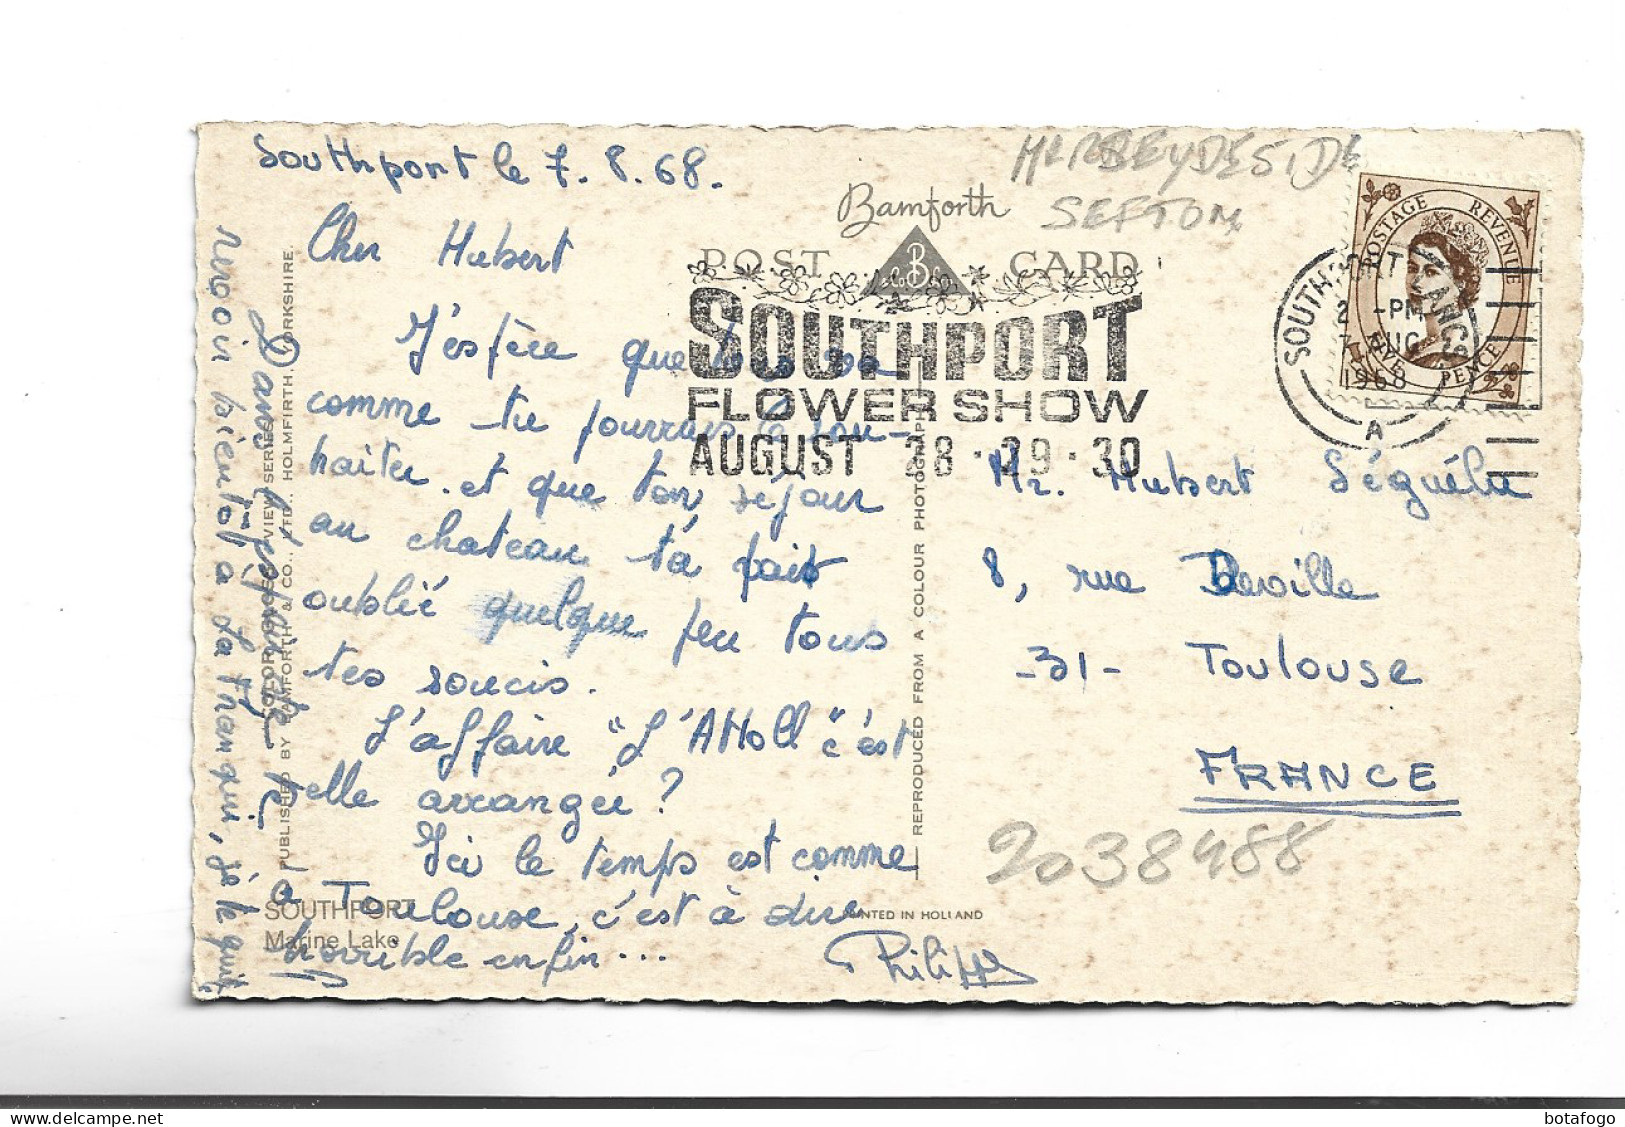 Southport le 7.8.68.
Cher Hubert
J'espère que tout va
comme tu pourrais le sou-
haiter. et que ton séjour
au chateau t'a fait
oublié quelque peu tous
tes soucis.
L'affaire "L'Atoll" c'est
elle arrangée ?
Ici le temps est comme
a Toulouse, c'est à dire
horrible enfin...
Philippe
Dans l'espoir de te
revoir bientôt a la Franqui, je te quitte
Bamforth
POST CARD
B
& Co Ld
MERSEYDESIDE
SEFTON
SOUTHPORT
FLOWER SHOW
AUGUST 28·29·30
POSTAGE REVENUE
FIVE PENCE
SOUTHPORT LANCS
2 -PM
7 AUG
1968
A
Mr. Hubert
8, rue Deville
-31- Toulouse
FRANCE
2038488
REPRODUCED FROM A COLOUR PHOTOGRAPH
PRINTED IN HOLLAND
COLORGLOSS VIEW SERIES
PUBLISHED BY BAMFORTH & CO., LTD., HOLMFIRTH, YORKSHIRE.
SOUTHPORT
Marine Lake
botafogo